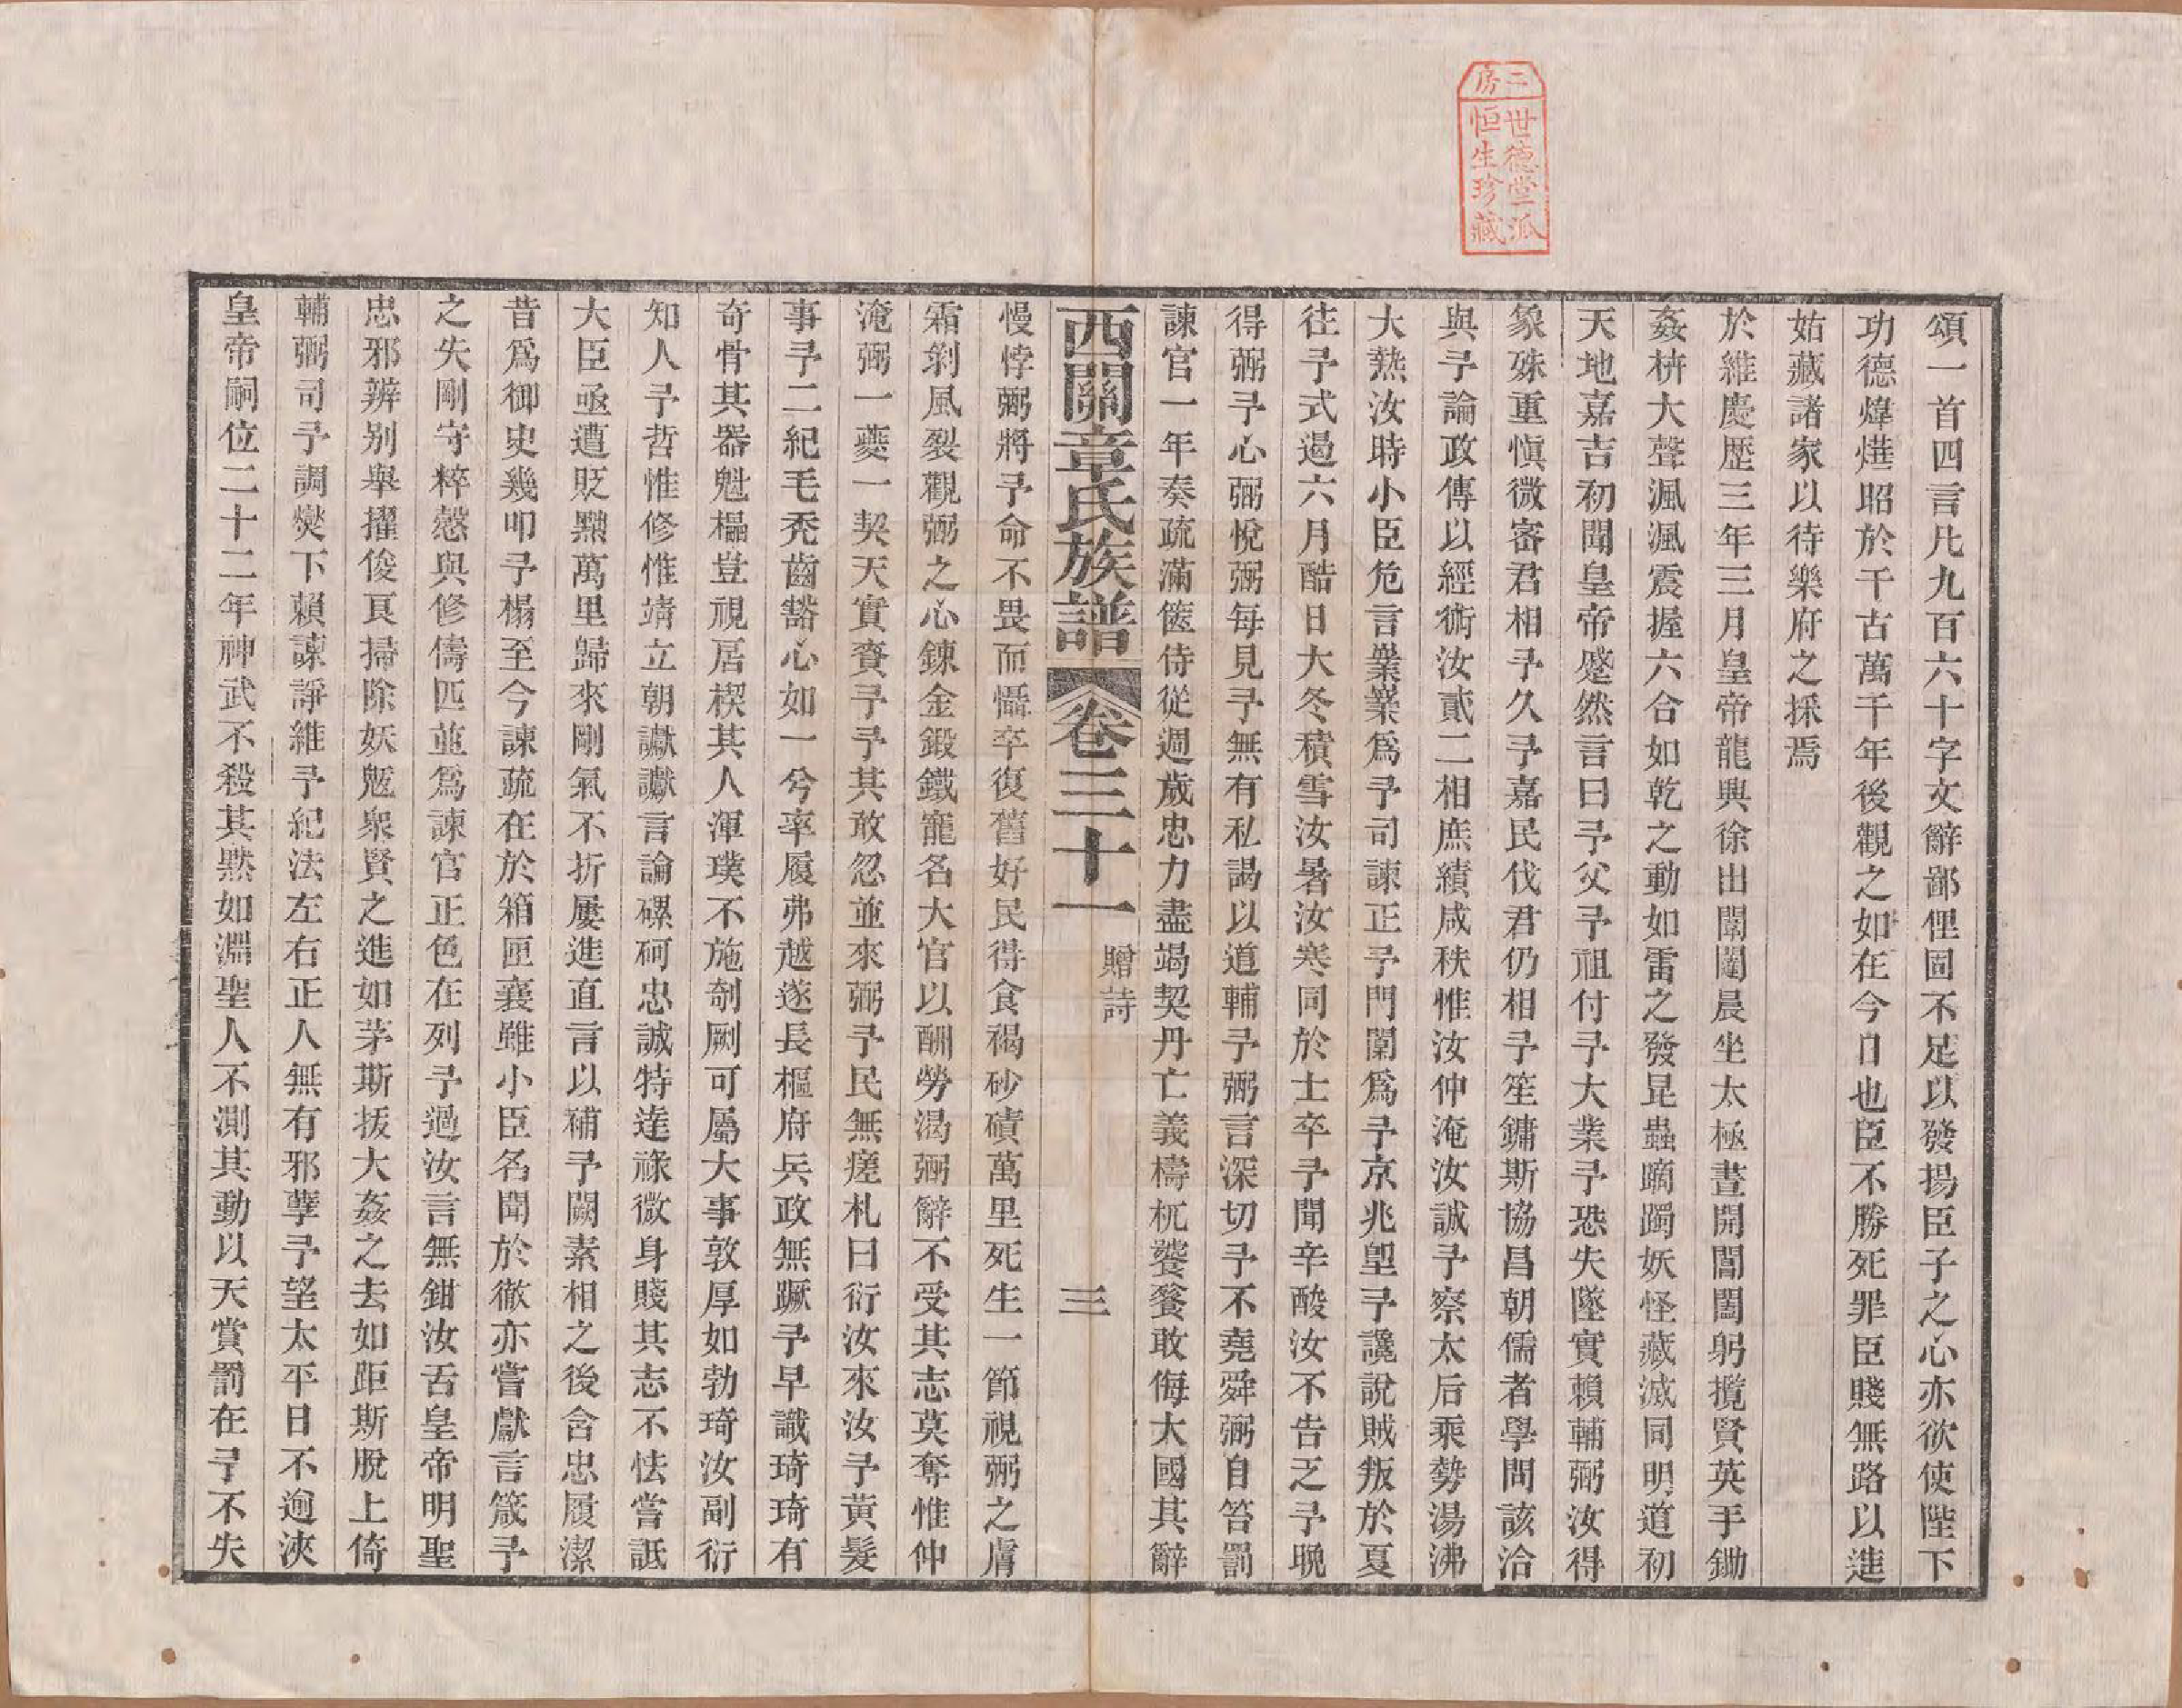 二房
世德堂派
恒生珍藏
頌一首四言凡九百六十字文辭鄙俚固不足以發揚臣子之心亦欲使陛下
功德煒燁昭於千古萬千年後觀之如在今日也臣不勝死罪臣賤無路以進
姑藏諸家以待樂府之採焉
於維慶歷三年三月皇帝龍興徐出闈闥晨坐太極晝開閶闔躬攬賢英手鋤
姦枿大聲渢渢震握六合如乾之動如雷之發昆蟲蹢躅妖怪藏滅同明道初
天地嘉吉初聞皇帝蹙然言曰予父予祖付予大業予恐失墜實賴輔弼汝得
象殊重慎微密君相予久予嘉民伐君仍相予笙鏞斯協昌朝儒者學問該洽
與予論政傳以經術汝貳二相庶績咸秩惟汝仲淹汝誠予察太后乘勢湯沸
大熱汝時小臣危言嶪嶪爲予司諫正予門闑爲予京兆堲予讒說賊叛於夏
往予式遏六月酷日大冬積雪汝暑汝寒同於士卒予聞辛酸汝不告乏予晩
得弼予心弼悅弼每見予無有私謁以道輔予弼言深切予不堯舜弼自笞罰
諫官一年奏疏滿篋侍從週歲忠力盡竭契丹亡義檮杌饕餮敢侮大國其辭
西關章氏族譜
卷三十一
贈詩
三
慢悖弼將予命不畏而懾卒復舊好民得食褐砂磧萬里死生一節視弼之膚
霜剝風裂觀弼之心鍊金鍛鐵寵名大官以酬勞渴弼辭不受其志莫奪惟仲
淹弼一夔一契天實賚予予其敢忽並來弼予民無瘥札曰衍汝來汝予黃髮
事予二紀毛禿齒豁心如一兮率履弗越遂長樞府兵政無蹶予早識琦琦有
奇骨其器魁櫑豈視居楔其人渾璞不施剞劂可屬大事敦厚如勃琦汝副衍
知人予哲惟修惟靖立朝讞讞言論磥砢忠誠特達祿微身賤其志不怯嘗詆
大臣亟遭貶黜萬里歸來剛氣不折屢進直言以補予闕素相之後含忠履潔
昔爲御史幾叩予榻至今諫疏在於箱匣襄雖小臣名聞於徹亦嘗獻言箴予
之失剛守粹慤與修儔匹並爲諫官正色在列予過汝言無鉗汝舌皇帝明聖
忠邪辨别舉擢俊良掃除妖魃衆賢之進如茅斯拔大姦之去如距斯脫上倚
輔弼司予調燮下賴諫諍維予紀法左右正人無有邪孽予望太平日不逾浹
皇帝嗣位二十二年神武不殺其默如淵聖人不測其動以天賞罰在予不失